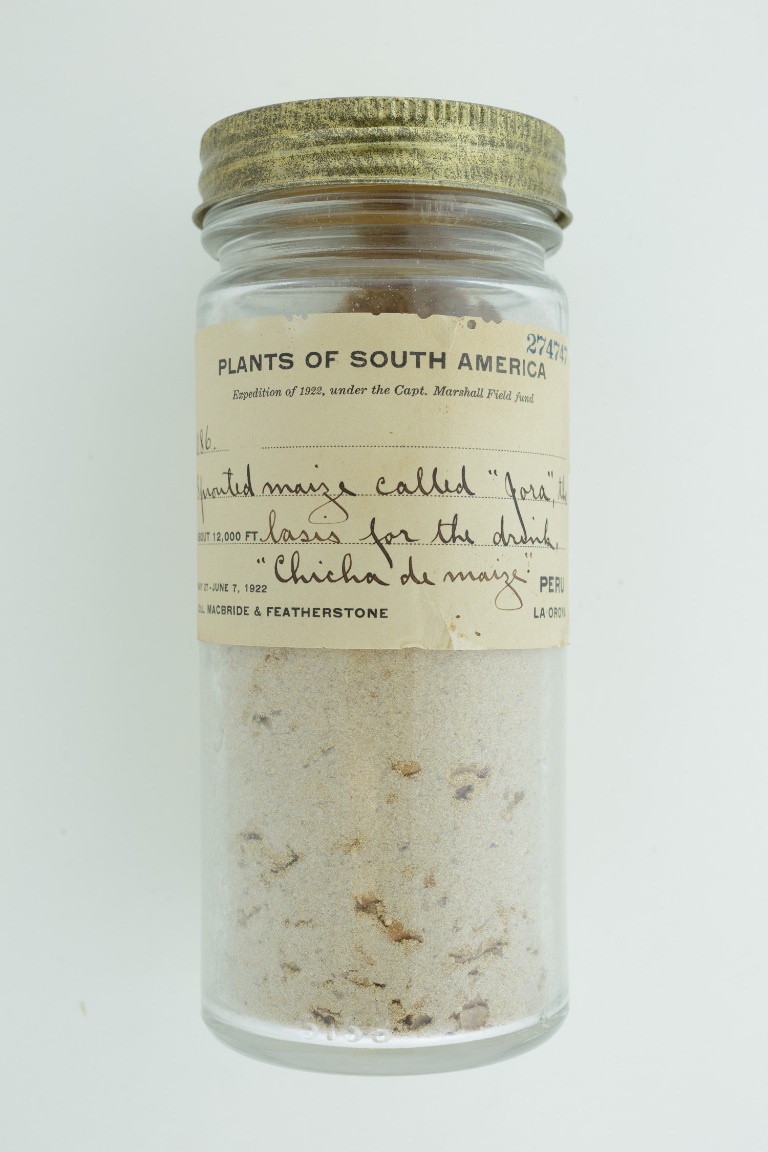 274747
PLANTS OF SOUTH AMERICA
Expedition of 1922, under the Capt. Marshall Field fund
86.
Sprouted maize called "Jora", the
BOUT 12,000 FT. basis for the drink,
"Chicha de maize"
AY 27-JUNE 7, 1922 PERU
LL. MACBRIDE & FEATHERSTONE LA OROYA